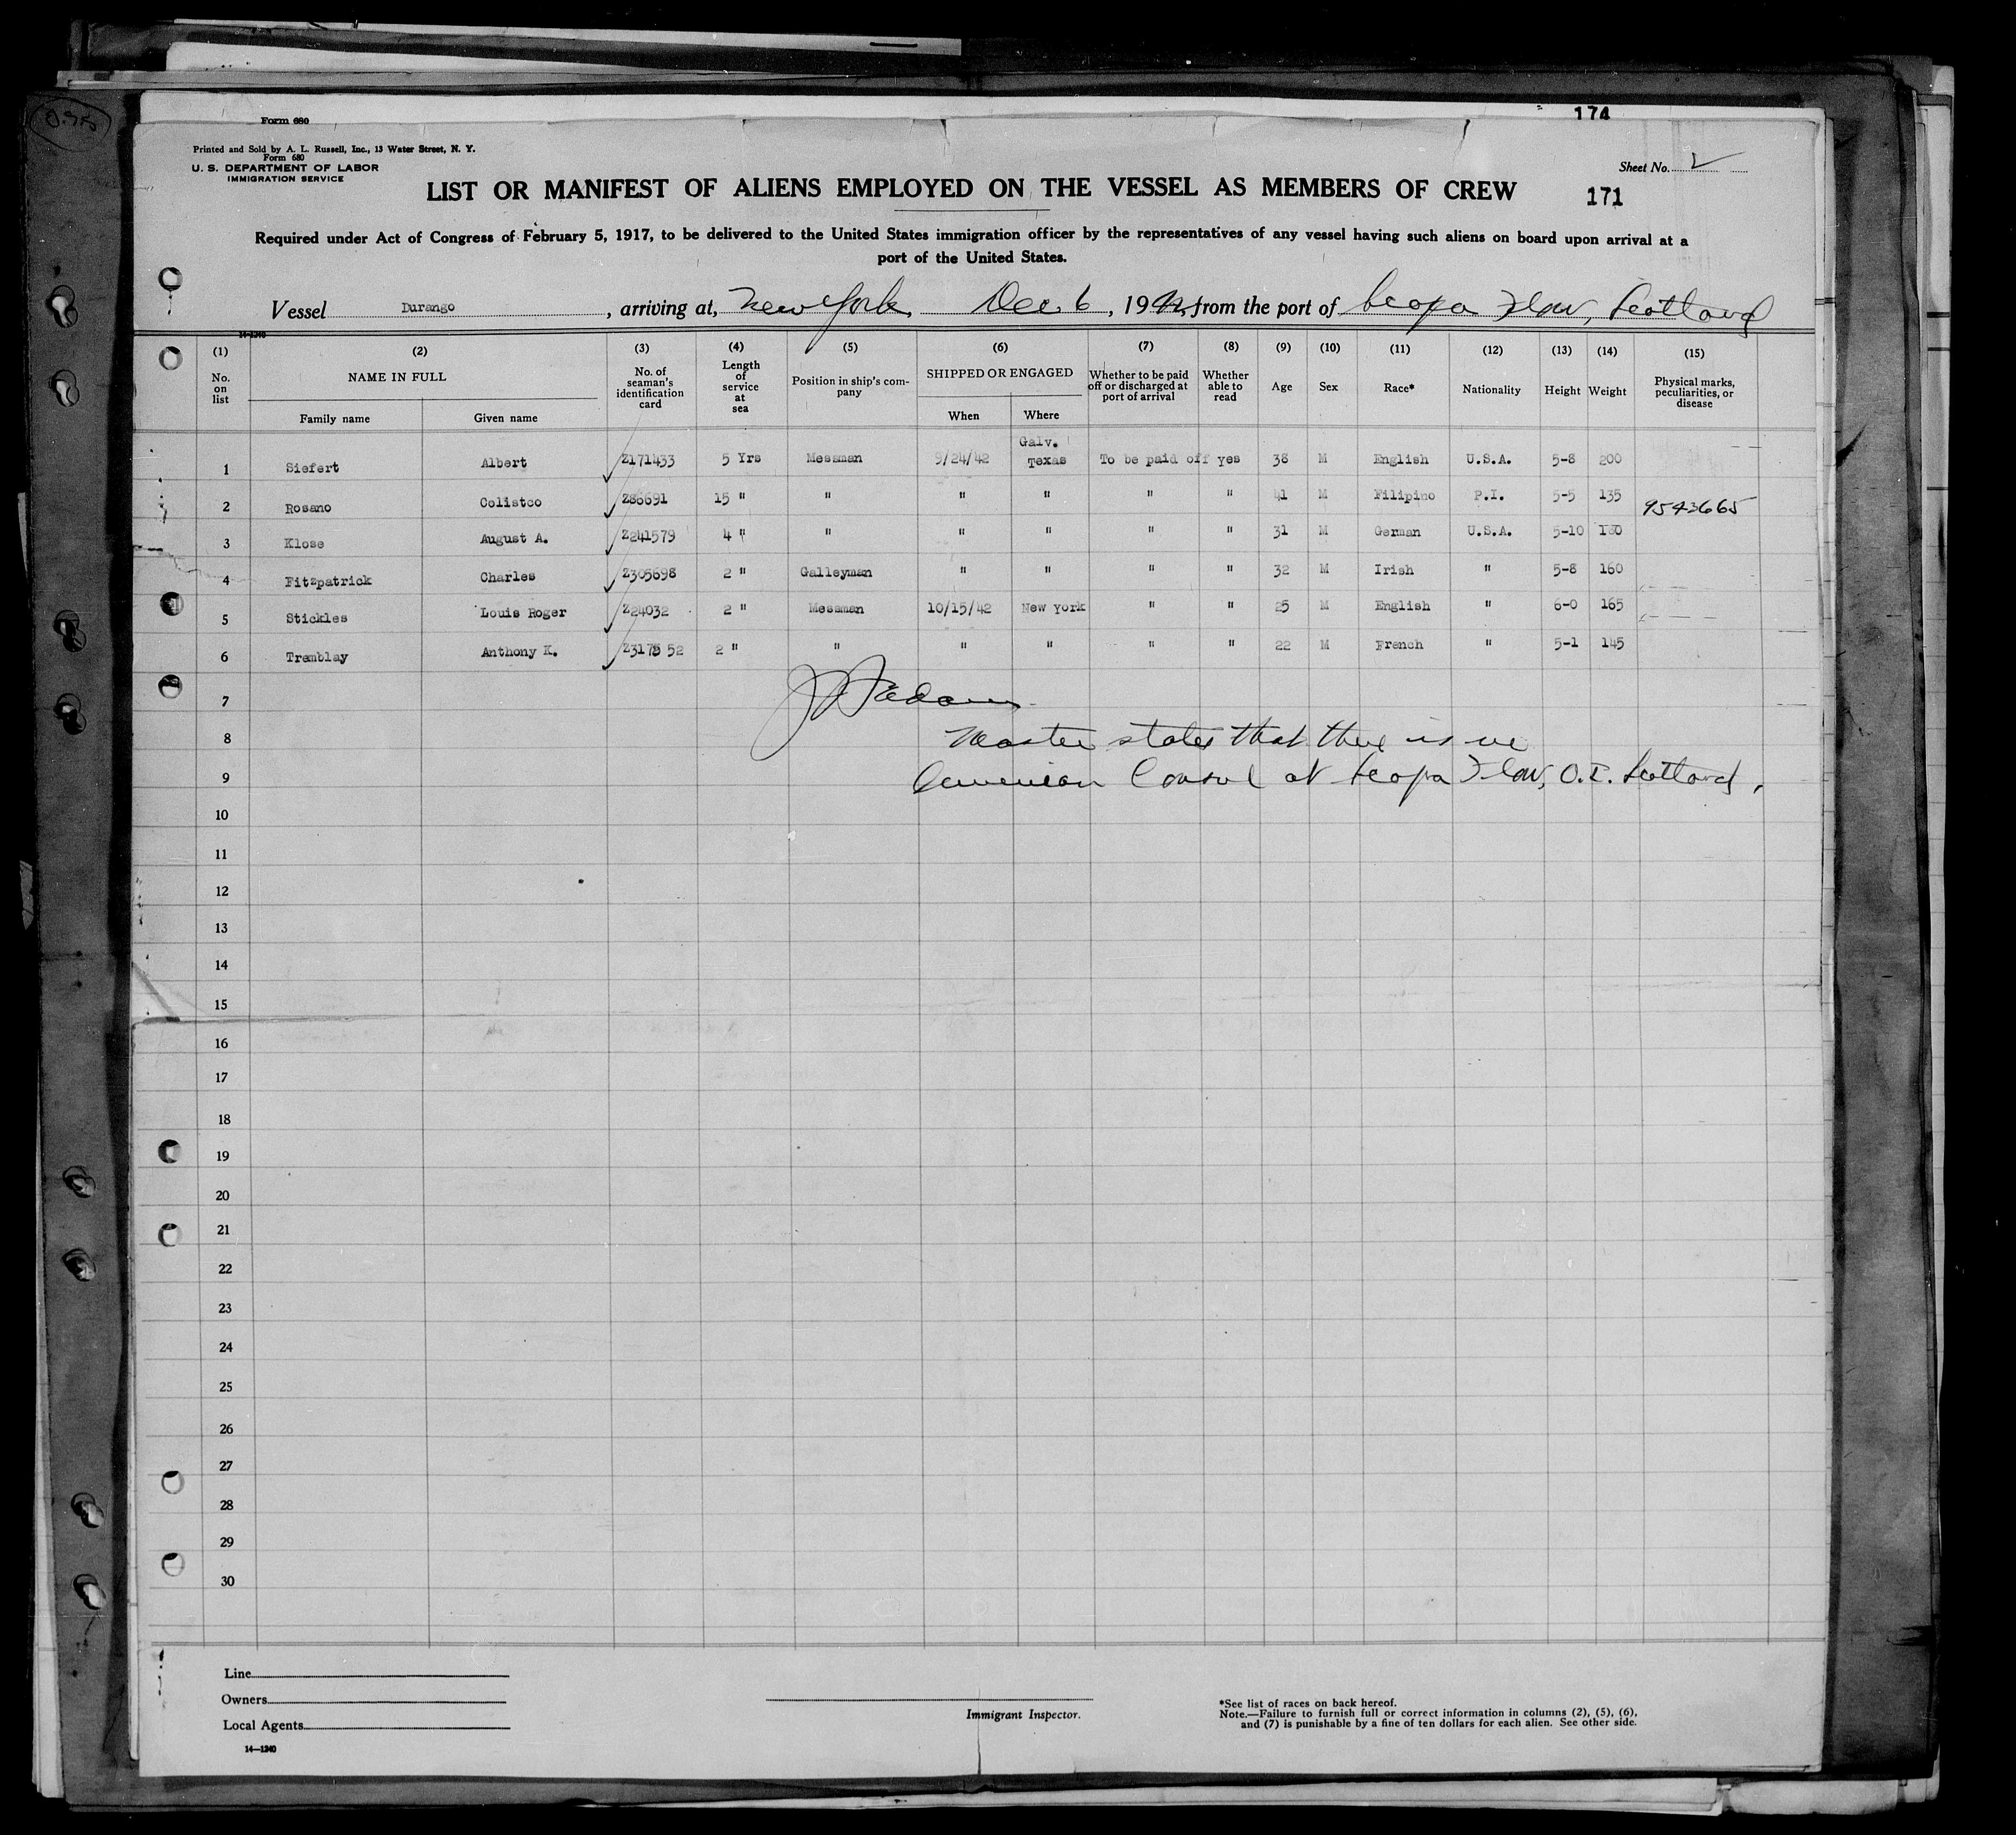 174
Form 680
Printed and Sold by A. L. Russell, Inc., 13 Water Street, N. Y.
Form 680
U. S. DEPARTMENT OF LABOR
IMMIGRATION SERVICE
Sheet No.
LIST OR MANIFEST OF ALIENS EMPLOYED ON THE VESSEL AS MEMBERS OF CREW
171
Required under Act of Congress of February 5, 1917, to be delivered to the United States immigration officer by the representatives of any vessel having such aliens on board upon arrival at a
port of the United States.
Vessel Durango, arriving at, New York, Dec 6, 1942, from the port of Scapa Flow, Scotland
14-1240
(1) (2) (3) (4) (5) (6) (7) (8) (9) (10) (11) (12) (13) (14) (15)
No. on list NAME IN FULL No. of seaman's identification card Length of service at sea Position in ship's company SHIPPED OR ENGAGED Whether to be paid off or discharged at port of arrival Whether able to read Age Sex Race* Nationality Height Weight Physical marks, peculiarities, or disease
Family name Given name When Where
1 Siefert Albert Z171433 5 Yrs Messman 9/24/42 Galv. Texas To be paid off yes 38 M English U.S.A. 5-8 200
2 Rosano Colistco Z86691 15 " " " " " " 41 M Filipino P.I. 5-5 135 9543665
3 Klose August A. Z241579 4 " " " " " " 31 M German U.S.A. 5-10
4 Fitzpatrick Charles Z305698 2 " Galleyman " " " " 32 M Irish " 5-8 160
5 Stickles Louis Roger Z24032 2 " Messman 10/15/42 New York " " 25 M English " 6-0 165
6 Tremblay Anthony K. 2 " " " " " " 22 M French " 5-1 145
7
8 Master states that there is no
9 American Consul at Scapa Flow, O.I. Scotland.
10
11
12
13
14
15
16
17
18
19
20
21
22
23
24
25
26
27
28
29
30
Line
Owners
Local Agents
14—1240
Immigrant Inspector.
*See list of races on back hereof.
Note.—Failure to furnish full or correct information in columns (2), (5), (6),
and (7) is punishable by a fine of ten dollars for each alien. See other side.